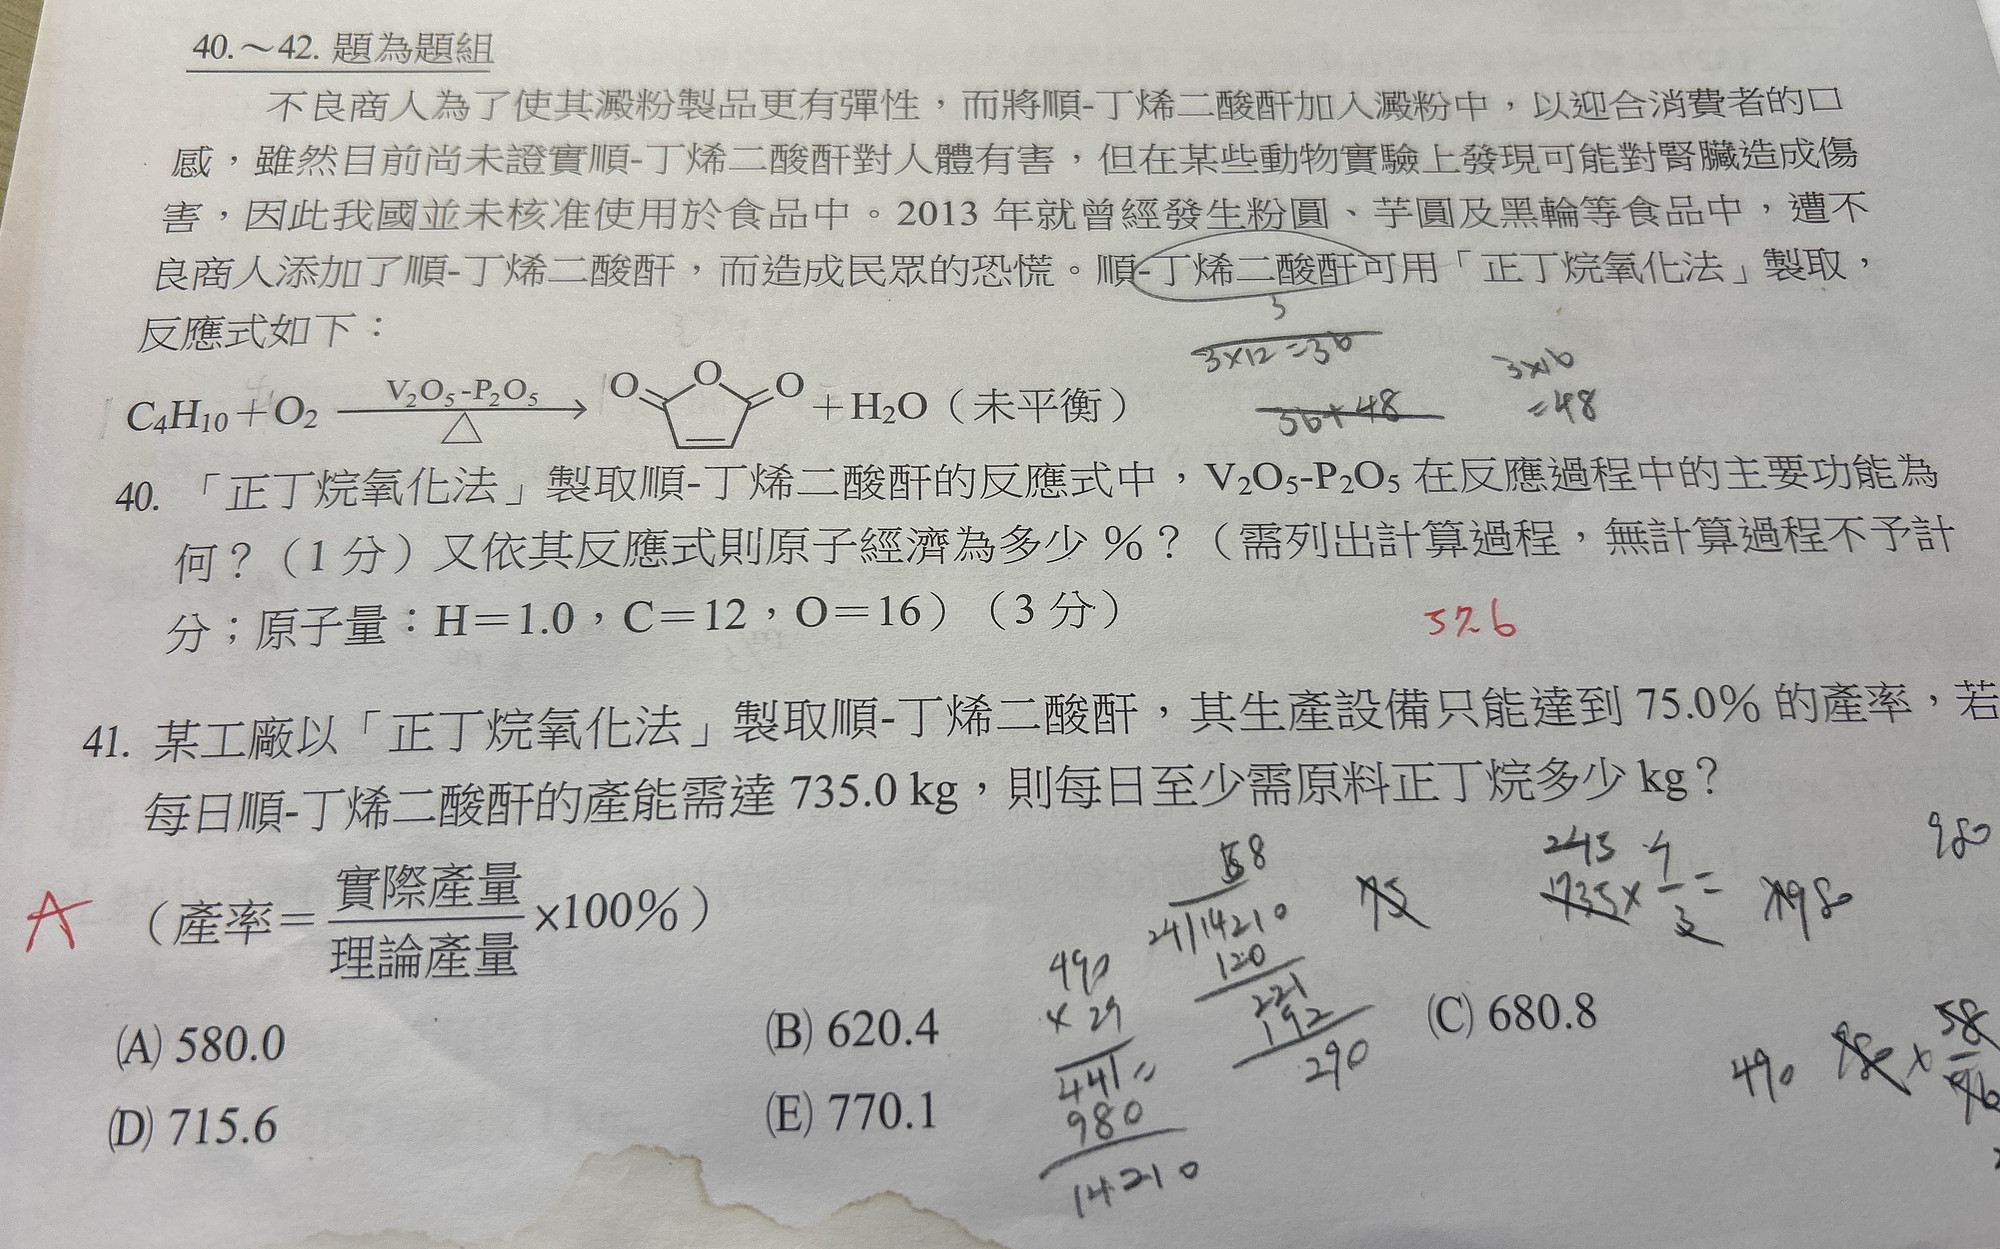 40.～42. 題為題組
不良商人為了使其澱粉製品更有彈性，而將順-丁烯二酸酐加入澱粉中，以迎合消費者的口
感，雖然目前尚未證實順-丁烯二酸酐對人體有害，但在某些動物實驗上發現可能對腎臟造成傷
害，因此我國並未核准使用於食品中。2013 年就曾經發生粉圓、芋圓及黑輪等食品中，遭不
良商人添加了順-丁烯二酸酐，而造成民眾的恐慌。順-丁烯二酸酐可用「正丁烷氧化法」製取，
反應式如下：
3
3×12=36
3×16
=48
36+48
C₄H₁₀＋O₂ V₂O₅-P₂O₅ △ O O O ＋H₂O（未平衡）
40. 「正丁烷氧化法」製取順-丁烯二酸酐的反應式中，V₂O₅-P₂O₅ 在反應過程中的主要功能為
何？（1 分）又依其反應式則原子經濟為多少 %？（需列出計算過程，無計算過程不予計
分；原子量：H＝1.0，C＝12，O＝16）（3 分）
57.6
41. 某工廠以「正丁烷氧化法」製取順-丁烯二酸酐，其生產設備只能達到 75.0% 的產率，若
每日順-丁烯二酸酐的產能需達 735.0 kg，則每日至少需原料正丁烷多少 kg？
A
（產率＝實際產量/理論產量×100%）
245
735×4/3=
980
980
58
24)14210
120
221
192
290
75
490
×29
441
980
14210
490 980×58/96
(A) 580.0
(B) 620.4
(C) 680.8
(D) 715.6
(E) 770.1